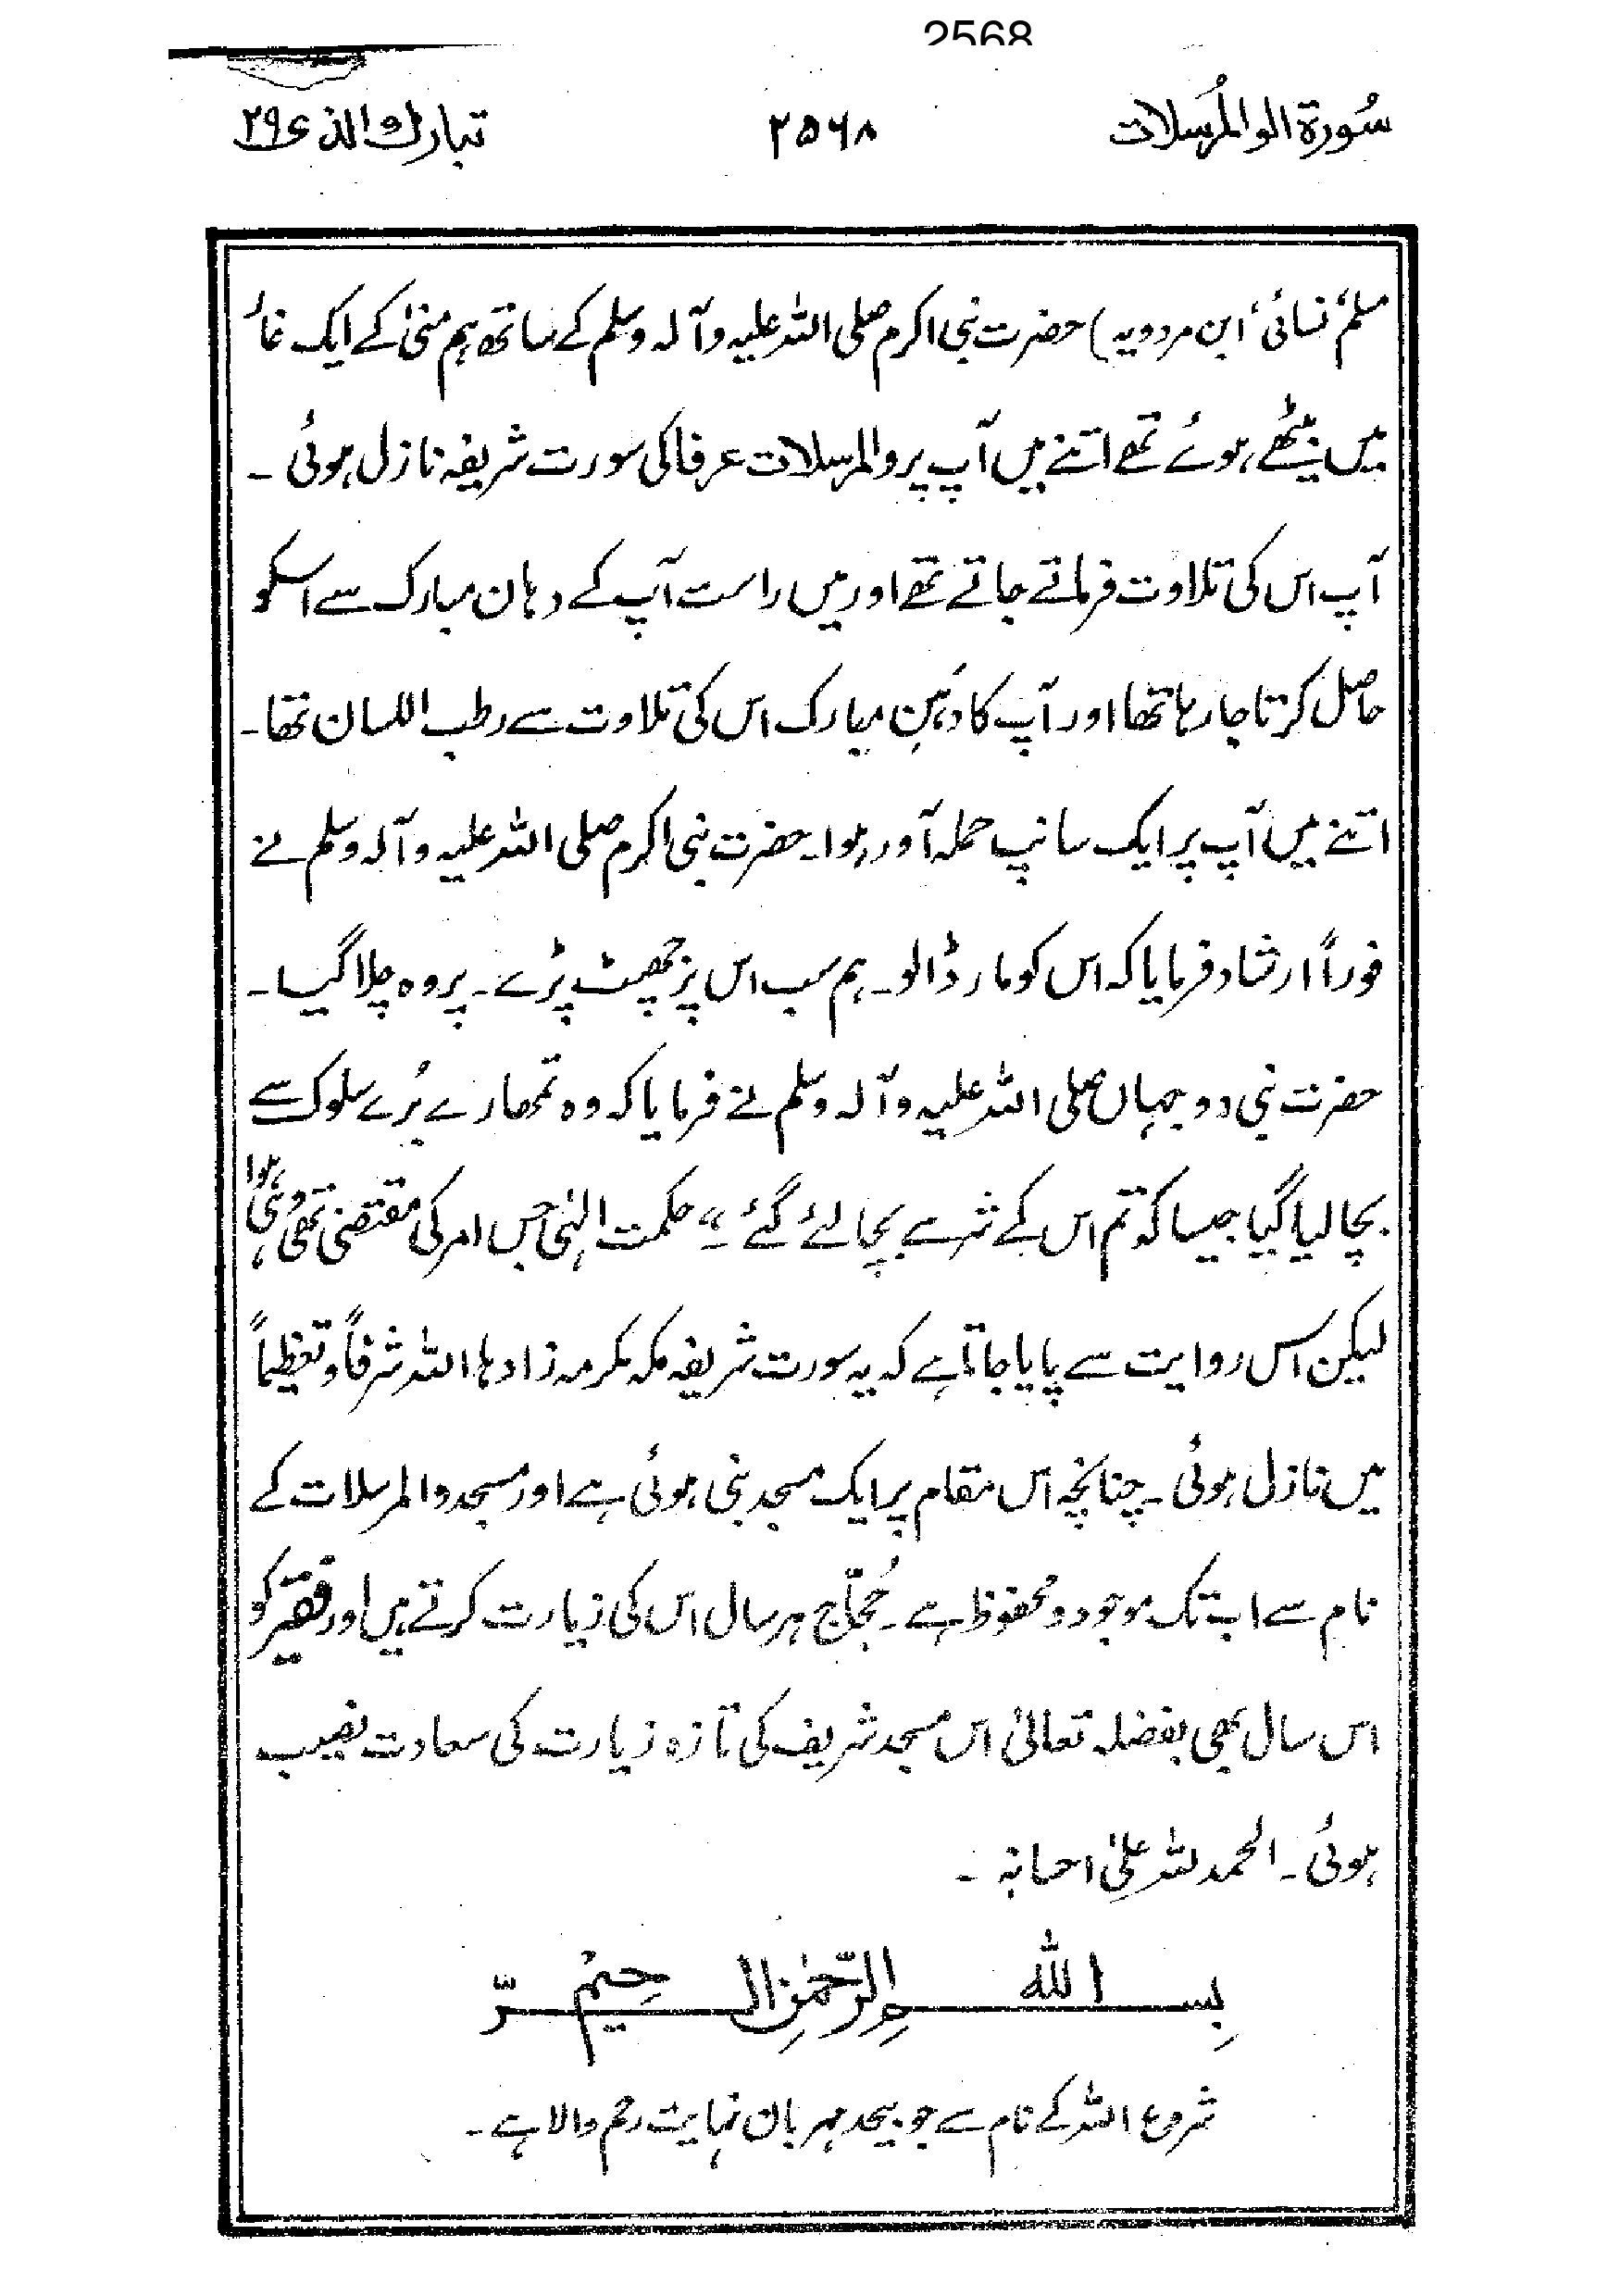 2568
سُورة الوالمُرسلات ۲۵۶۸ تبارك الذی ۲۹
مسلم، نسائی، ابن مردویہ) حضرت نبی اکرم صلی اللہ علیہ وآلہ وسلم کے ساتھ ہم منیٰ کے ایک غار
میں بیٹھے ہوئے تھے اتنے میں آپ پر والمرسلات عرفا کی سورت شریفہ نازل ہوئی ۔
آپ اس کی تلاوت فرماتے جاتے تھے اور میں راست آپ کے دہان مبارک سے اسکو
حاصل کرتا جا رہا تھا اور آپ کا دَہنِ مبارک اس کی تلاوت سے رطب اللسان تھا۔
اتنے میں آپ پر ایک سانپ حملہ آور ہوا۔ حضرت نبی اکرم صلی اللہ علیہ وآلہ وسلم نے
فوراً ارشاد فرمایا کہ اس کو مار ڈالو۔ ہم سب اس پر جھپٹ پڑے۔ پر وہ چلا گیا۔
حضرت نبی دوجہاں صلی اللہ علیہ وآلہ وسلم نے فرمایا کہ وہ تمھارے بُرے سلوک سے
بچا لیا گیا جیسا کہ تم اس کے شر سے بچا لئے گئے ۔" حکمت الٰہی جس امر کی مقتضی تھی وہی ہوا
لیکن اس روایت سے پایا جاتا ہے کہ یہ سورت شریفہ مکہ مکرمہ زادہا اللہ شرفاً و تعظیماً
میں نازل ہوئی ۔ چنانچہ اس مقام پر ایک مسجد بنی ہوئی ہے اور مسجد والمرسلات کے
نام سے اب تک موجود و محفوظ ہے ۔ حُجّاج ہر سال اس کی زیارت کرتے ہیں اور فقیر کو
اس سال بھی بفضلہ تعالیٰ اس مسجد شریف کی تازہ زیارت کی سعادت نصیب
ہوئی ۔ الحمد للہ علیٰ احسانہ ۔
بِسـمِ اللهِ الرَّحْمٰنِ الرَّحِیْمِ
شروع اللہ کے نام سے جو بیحد مہربان نہایت رحم والا ہے ۔